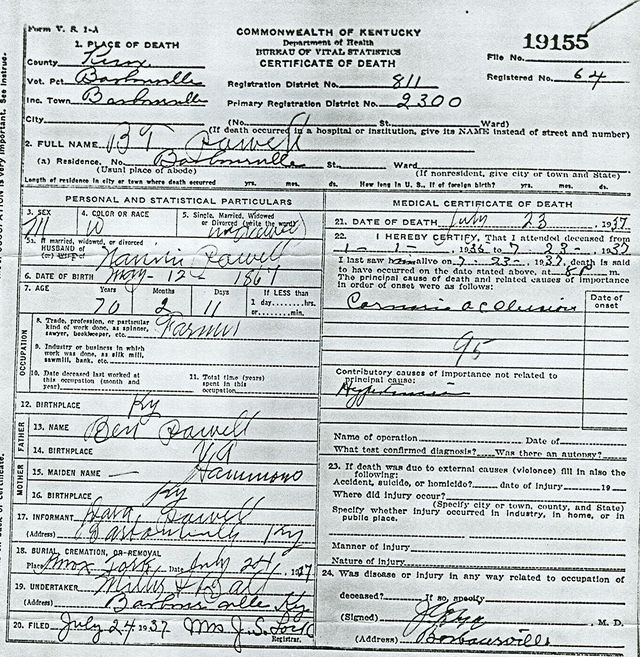 Form V. S. 1-A
COMMONWEALTH OF KENTUCKY
Department of Health
BUREAU OF VITAL STATISTICS
CERTIFICATE OF DEATH
19155
File No.
Registered No. 64
1. PLACE OF DEATH
County Knox
Vot. Pct. Barbourville
Inc. Town Barbourville
City
Registration District No. 811
Primary Registration District No. 2300
(No. St. Ward)
(If death occurred in a hospital or institution, give its NAME instead of street and number)
2. FULL NAME B T Powell
(a) Residence. No. Barbourville St. Ward
(Usual place of abode) (If nonresident, give city or town and State)
Length of residence in city or town where death occurred yrs. mos. ds. How long in U. S., if of foreign birth? yrs. mos. ds.
PERSONAL AND STATISTICAL PARTICULARS
3. SEX
M
4. COLOR OR RACE
W
5. Single, Married, Widowed
or Divorced (write the word)
5a. If married, widowed, or divorced
HUSBAND of
(or) WIFE of Powell
6. DATE OF BIRTH May - 12 - 1867
7. AGE Years Months Days If LESS than
1 day hrs.
or min.
70 2 11
OCCUPATION
8. Trade, profession, or particular
kind of work done, as spinner,
sawyer, bookkeeper, etc. Farmer
9. Industry or business in which
work was done, as silk mill,
sawmill, bank, etc.
10. Date deceased last worked at
this occupation (month and
year)
11. Total time (years)
spent in this
occupation
12. BIRTHPLACE Ky
FATHER
13. NAME Ben Powell
14. BIRTHPLACE Va
MOTHER
15. MAIDEN NAME — Hammond
16. BIRTHPLACE Ky
17. INFORMANT Powell
(Address) Barbourville Ky
18. BURIAL, CREMATION, OR REMOVAL
Place Knox Fork Date July 24, 1937
19. UNDERTAKER
(Address) Barbourville Ky
20. FILED July 24 1937 Mrs J. S. Lock
Registrar.
MEDICAL CERTIFICATE OF DEATH
21. DATE OF DEATH July 23, 1937
22. I HEREBY CERTIFY, That I attended deceased from
1 - 1 - 1936 to 7 - 23 - 1937
I last saw h alive on 7 - 23 - 1937, death is said
to have occurred on the date stated above, at 8 P m.
The principal cause of death and related causes of importance
in order of onset were as follows:
Date of
onset
Coronary occlusion
95
Contributory causes of importance not related to
principal cause:
Hypertension
Name of operation Date of
What test confirmed diagnosis? Was there an autopsy?
23. If death was due to external causes (violence) fill in also the
following:
Accident, suicide, or homicide? date of injury 19
Where did injury occur?
(Specify city or town, county, and State)
Specify whether injury occurred in industry, in home, or in
public place.
Manner of injury
Nature of injury
24. Was disease or injury in any way related to occupation of
deceased? If so, specify
(Signed) M. D.
(Address) Barbourville